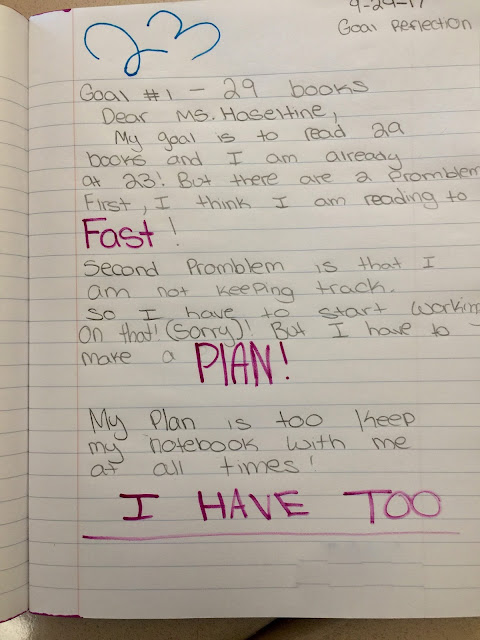 9-29-17
Goal Reflection
23
Goal #1 - 29 books
Dear Ms. Haseltine,
My goal is to read 29
books and I am already
at 23! But there are 2 Promblem
First, I think I am reading to
Fast!
Second Promblem is that I
am not keeping track.
So I have to start workin
on that! (Sorry)! But I have to
make a PlAN!
My Plan is too keep
my notebook with me
at all times!
I HAVE TOO